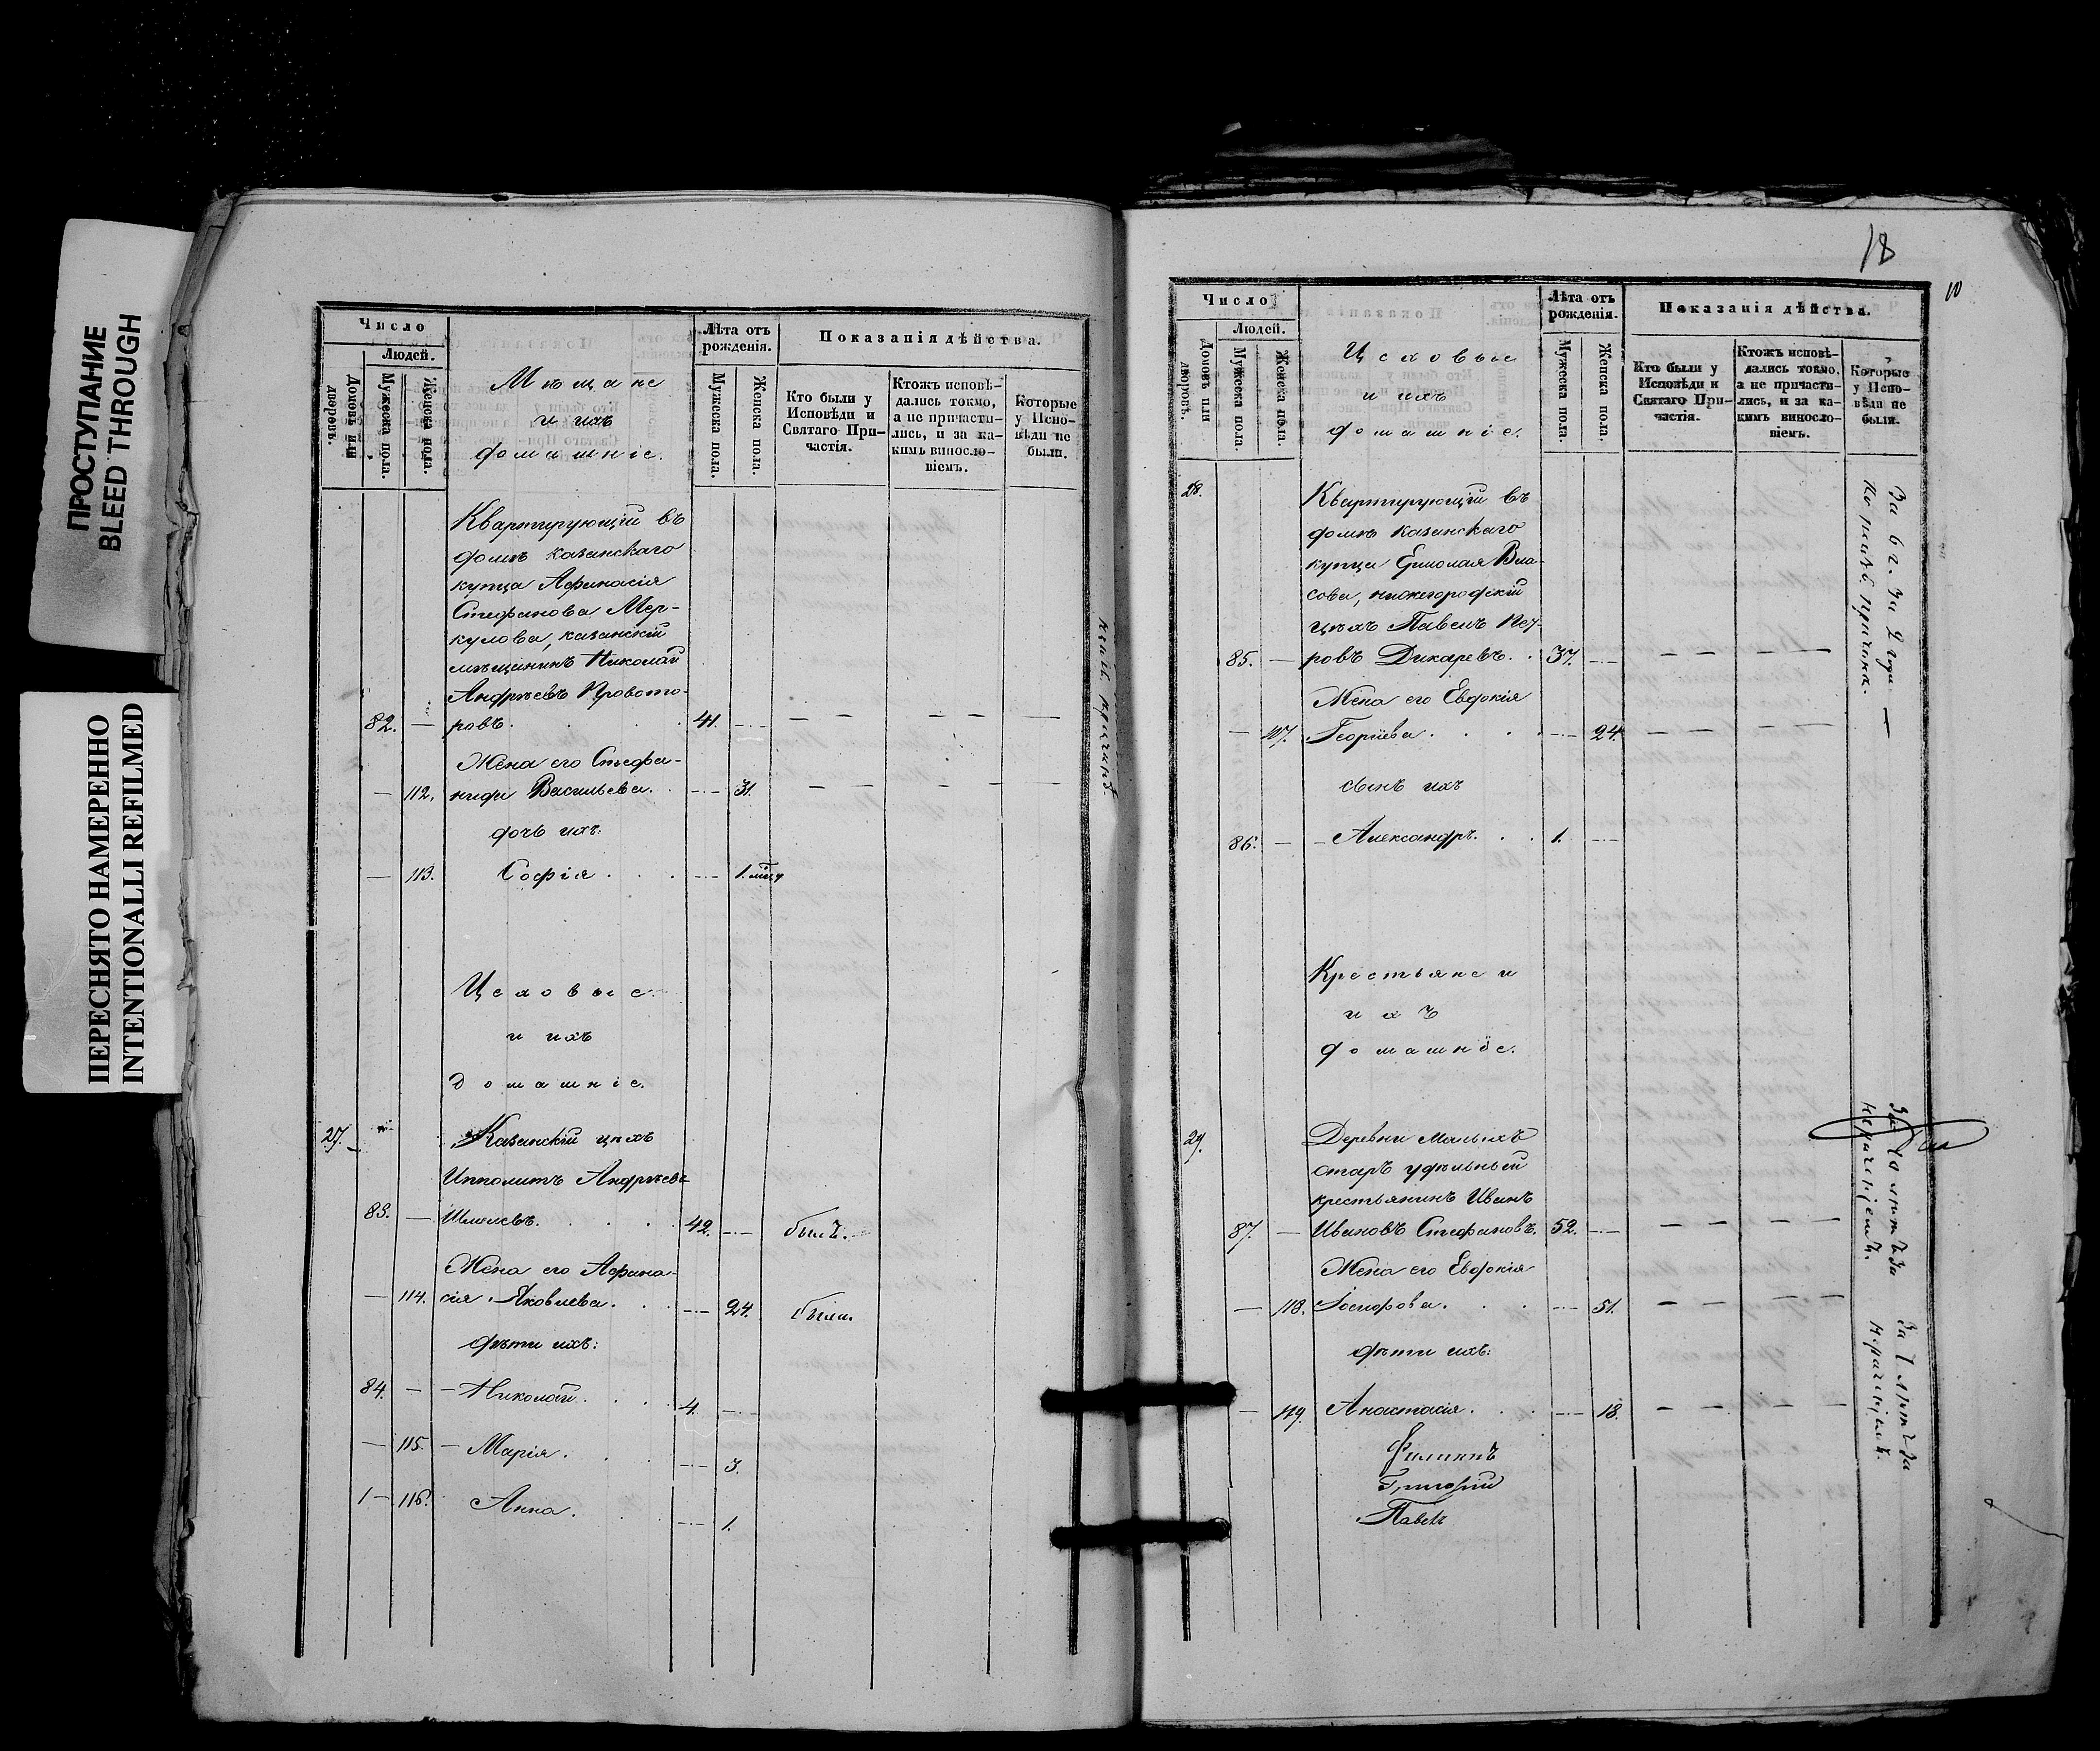 ПРОСТУПАНИЕ
BLEED THROUGH
ПЕРЕСНЯТО НАМЕРЕННО
INTENTIONALLI REFILMED
Число
Людей.
Домовъ или дворовъ.
Мужеска пола.
Женска пола.
Мѣщане
и ихъ
домашніе.
Лѣта отъ рожденія.
Мужеска пола.
Женска пола.
Показанія дѣйства.
Кто были у Исповѣди и Святаго При-частія.
Ктожъ исповѣ-дались токмо, а не причасти-лись, и за ка-кимъ виносло-віемъ.
Которые у Испо-вѣди не были.
Квартирующій въ
домѣ казанскаго
купца Афанасія
Стефанова Мер-
кулова, казанскій
мѣщанинъ Николай
Андреевъ Провото-
82. — ровъ. 41. — — — — — —
Жена его Стефа-
— 112. нида Васильева. — 31. — — — — —
дочь ихъ:
— 113. Софія — 1. мцъ
Цеховые
и ихъ
домашніе.
27. Казанскій цехъ
Ипполитъ Андреевъ
83. — Шмелевъ. 42. — былъ.
Жена его Афана-
— 114. сія Яковлева. — 24. была.
дѣти ихъ:
84. — Николай. 4. —
— 115. Марія. — 3.
1 — 116. Анна. — 1.
18
10
Число
Людей.
Домовъ или дворовъ.
Мужеска пола
Женска пола.
Цеховые
и ихъ
домашніе.
Лѣта отъ рожденія.
Мужеска пола.
Женска пола.
Показанія дѣйства.
Кто были у Исповѣди и Святаго При-частія.
Ктожъ исповѣ-дались токмо, а не причасти-лись, и за ка-кимъ виносло-віемъ.
Которые у Испо-вѣди не были.
28. Квартирующій въ
домѣ казанскаго
купца Ермолая Вла-
сова, нижегородскій
цехъ Павелъ Пет-
85. — ровъ Дикаревъ. 37. — — — — —
Жена его Евдокія
— 117. Георгіева. — 24. — — — —
сынъ ихъ
86. — Александръ. 1. —
Крестьяне и
ихъ
домашніе.
29. Деревни Малыхъ
отаръ удѣльный
крестьянинъ Иванъ
87. — Ивановъ Стефановъ. 52. — — — — —
Жена его Евдокія
— 118. Іосифова. — 51. — — — —
дѣти ихъ:
— 119. Анастасія. — 18. — — — —
Филиппъ
Григорій
Павелъ